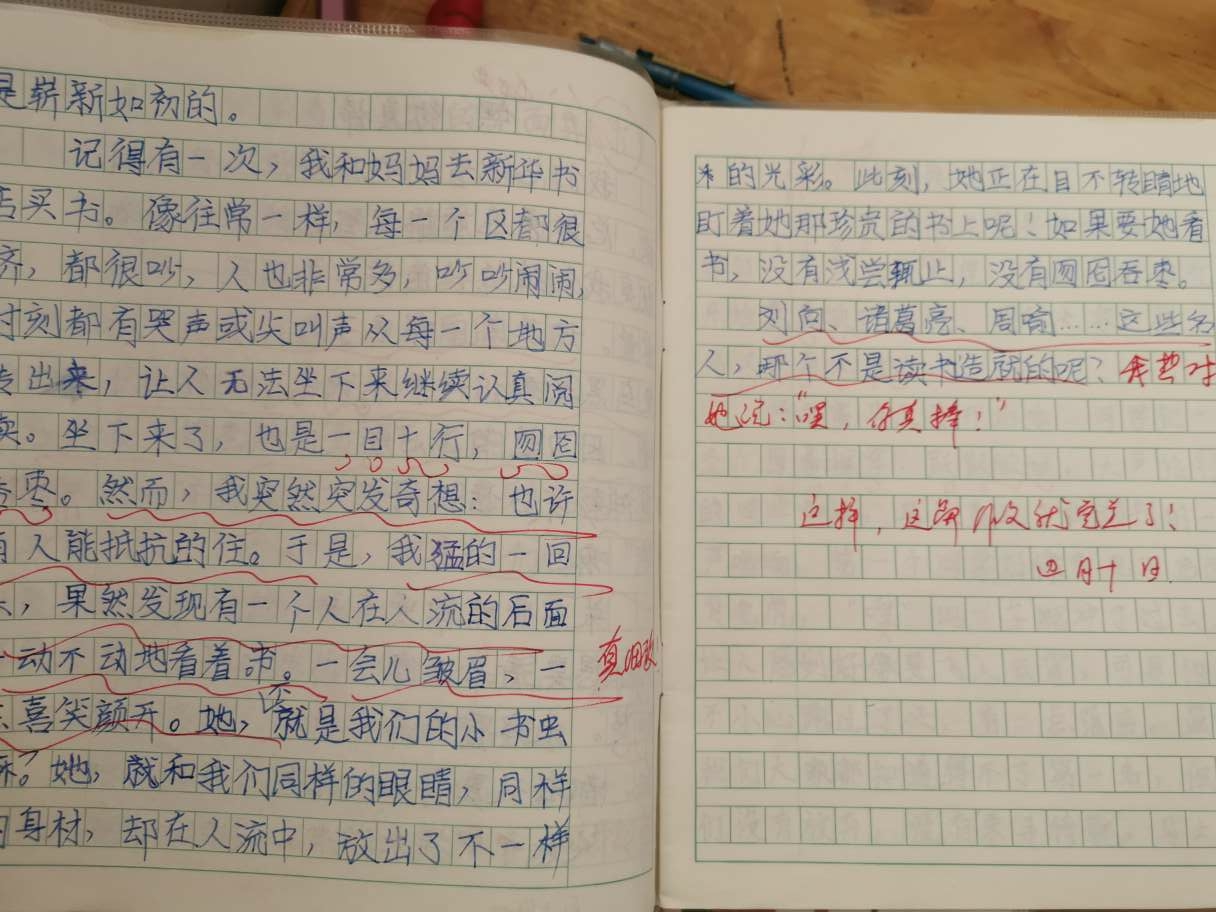 是崭新如初的。
记得有一次，我和妈妈去新华书
店买书。像往常一样，每一个区都很
挤，都很吵，人也非常多，吵吵闹闹，
时刻都有哭声或尖叫声从每一个地方
传出来，让人无法坐下来继续认真阅
读。坐下来了，也是一目十行，囫囵
吞枣。然而，我突然突发奇想：也许
有人能抵抗的住。于是，我猛的一回
头，果然发现有一个人在人流的后面
一动不动地看着书。一会儿皱眉，一
真细致
喜笑颜开。她，不就是我们的小书虫
吗？她，就和我们同样的眼睛，同样
的身材，却在人流中，放出了不一样
的光彩。此刻，她正在目不转睛地
盯着她那珍贵的书上呢！如果要她看
书，没有浅尝辄止，没有囫囵吞枣。
刘向、诸葛亮、周喻……这些名
人，哪个不是读书造就的呢？我要对
她说：“嘿，你真棒！”
这样，这篇作文就完美了！
四月十日